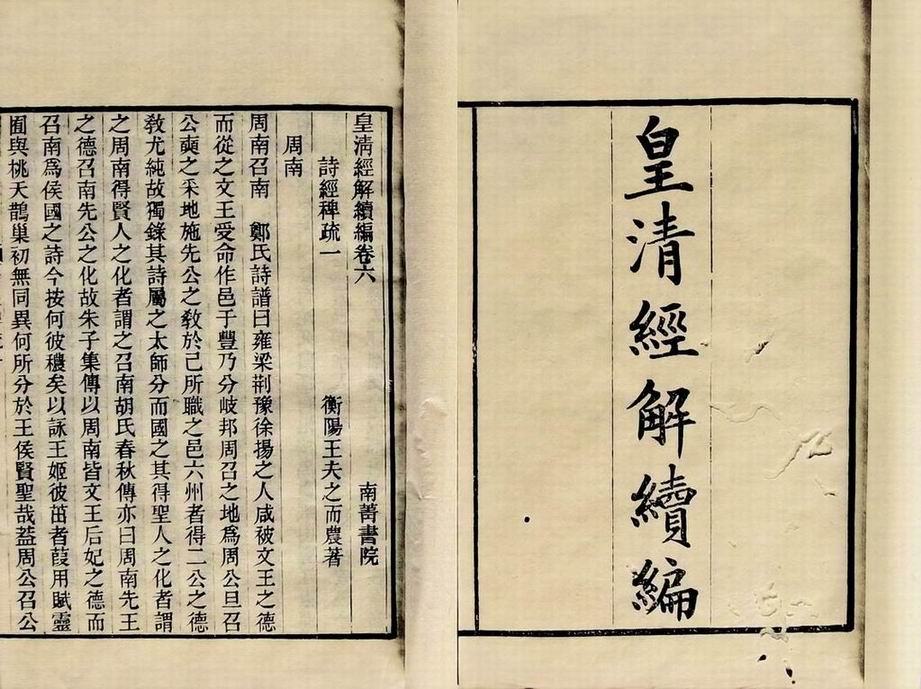 皇清經解續編
皇清經解續編卷六 南菁書院
詩經稗疏一 衡陽王夫之而農著
周南
周南召南 鄭氏詩譜曰雍梁荆豫徐揚之人咸被文王之德
而從之文王受命作邑于豐乃分岐邦周召之地爲周公旦召
公奭之采地施先公之敎於己所職之邑六州者得二公之德
敎尤純故獨錄其詩屬之太師分而國之其得聖人之化者謂
之周南得賢人之化者謂之召南胡氏春秋傳亦曰周南先王
之德召南先公之化故朱子集傳以周南皆文王后妃之德而
召南爲侯國之詩今按何彼穠矣以詠王姬彼茁者葭用賦靈
囿與桃夭鵲巢初無同異何所分於王侯賢聖哉葢周公召公